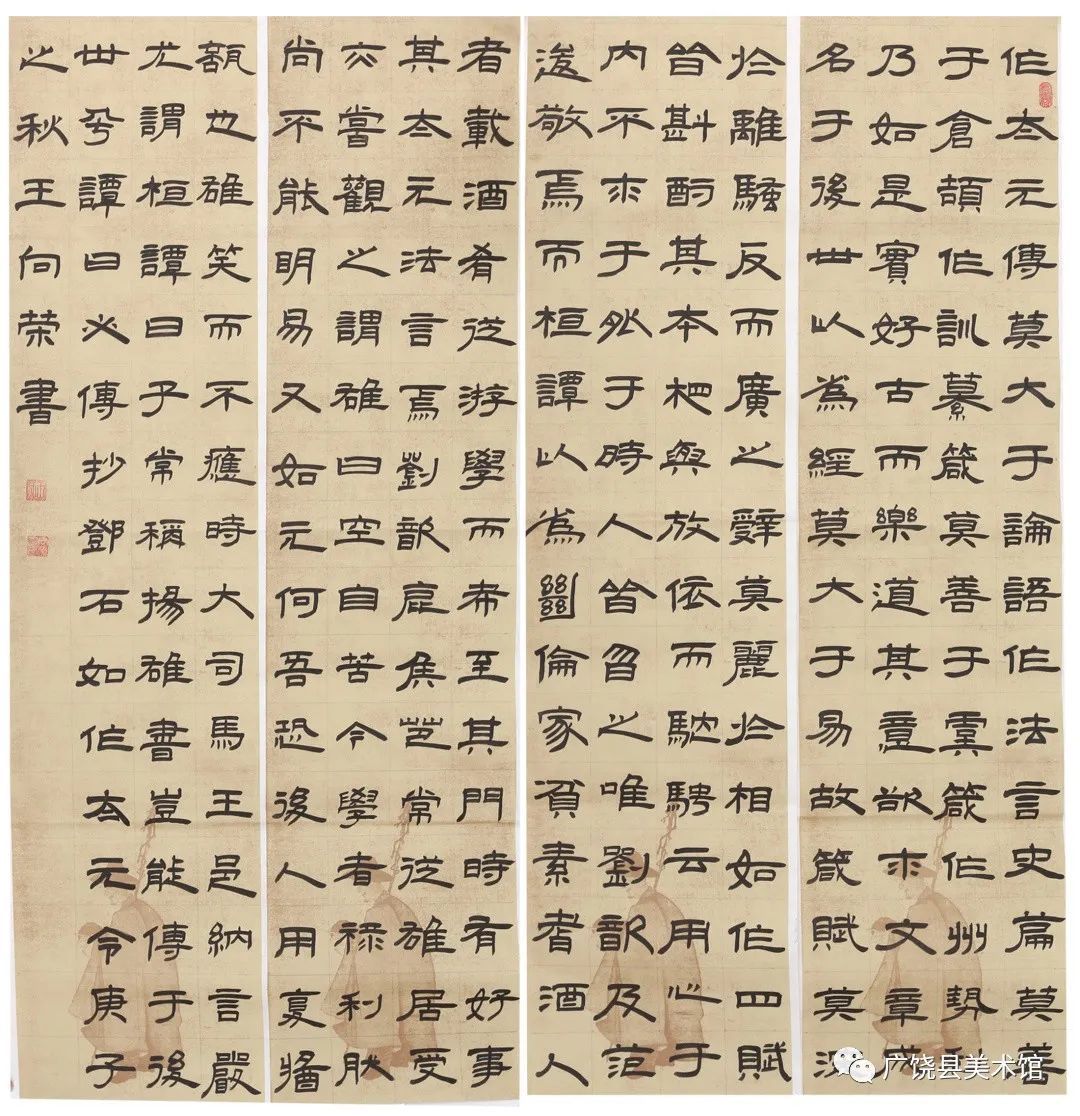 作太元傳莫大于論語作法言史篇莫善
于倉頡作訓纂箴莫善于虞箴作州勢利
乃如是實好古而樂道其意欲求文章成
名于後世以為經莫大于易故箴賦莫深
於離騷反而廣之辭莫麗於相如作四賦
皆斟酌其本相與放依而馳騁云用心于
內不求于外于時人皆曶之唯劉歆及范
逡敬焉而桓譚以為絕倫家貧素耆酒人
者載酒肴從游學而希至其門時有好事
其太元法言焉劉歆侯芭常從雄居受
亦嘗觀之謂雄曰空自苦今學者祿利然
尚不能明易又如元何吾恐後人用覆醬
瓿也雄笑而不應時大司馬王邑納言嚴
尤謂桓譚曰子常稱揚雄書豈能傳于後
世乎譚曰必傳抄鄧石如作太元今庚子
之秋王向荣書
广饶县美术馆